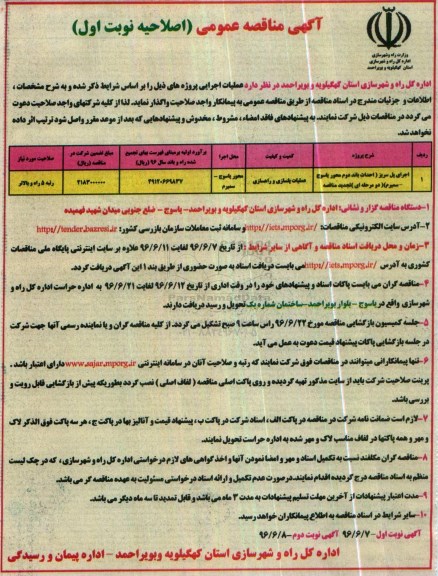 آگهی مناقصه عمومی (اصلاحیه نوبت اول)
وزارت راه و شهرسازی
اداره کل راه و شهرسازی
استان کهگیلویه و بویراحمد
اداره کل راه و شهرسازی استان کهگیلویه و بویراحمد در نظر دارد عملیات اجرایی پروژه های ذیل را بر اساس شرایط ذکر شده و به شرح مشخصات ،
اطلاعات و جزئیات مندرج در اسناد مناقصه از طریق مناقصه عمومی به پیمانکار واجد صلاحیت واگذار نماید. لذا از کلیه شرکتهای واجد صلاحیت دعوت
می گردد در مناقصات ذیل شرکت نمایند. به پیشنهادهای فاقد امضاء ، مشروط ، مخدوش و پیشنهادهایی که بعد از موعد مقرر واصل شود ترتیب اثر داده
نخواهد شد.
ردیف شرح پروژه کمیت و کیفیت محل اجرا برآورد اولیه برمبنای فهرست بهای تجمیع شده راه و باند سال ۹۶ (ریال) مبلغ تضمین شرکت در مناقصه (ریال) صلاحیت مورد نیاز
۱ اجرای پل سریز (احداث باند دوم محور یاسوج - سمیرم)( دو مرحله ای)تجدید مناقصه عملیات پلسازی و راهسازی محور یاسوج - سمیرم ۳۹۱۲۰۶۶۹۸۳۷ ۲۱۸۳۰۰۰۰۰۰ رتبه ۵ راه و بالاتر
۱-دستگاه مناقصه گزار و نشانی: اداره کل راه و شهرسازی استان کهگیلویه و بویراحمد- یاسوج - ضلع جنوبی میدان شهید فهمیده
۲-آدرس سایت الکترونیکی مناقصات: http//iets.mporg.ir/ و سامانه ثبت معاملات سازمان بازرسی کشور: http//tender.bazresi.ir
۳-زمان و محل دریافت اسناد مناقصه و آگاهی از سایر شرایط : از تاریخ ۹۶/۶/۷ لغایت ۹۶/۶/۱۱ علاوه بر سایت اینترنتی پایگاه ملی مناقصات
کشوری به آدرس http//iets.mporg.ir/ می بایست دریافت اسناد به صورت حضوری از طریق بند ۱ این آگهی دریافت گردد.
۴-مناقصه گران می بایست پاکات اسناد و پیشنهادهای خود را در وقت اداری از تاریخ ۹۶/۶/۱۲ لغایت ۹۶/۶/۲۱ به اداره حراست اداره کل راه و
شهرسازی واقع در یاسوج - بلوار بویراحمد-ساختمان شماره یک تحویل و رسید دریافت دارند.
۵-جلسه کمیسیون بازگشایی مناقصه مورخ ۹۶/۶/۲۲ راس ساعت ۹ صبح تشکیل می گردد. از کلیه مناقصه گران و یا نماینده رسمی آنها جهت شرکت
در جلسه بازگشایی پاکات پیشنهاد قیمت دعوت به عمل می آید.
۶-تنها پیمانکارانی میتوانند در مناقصات فوق شرکت نمایند که رتبه و صلاحیت آنان در سامانه اینترنتی www.sajar.mporg.ir دارای اعتبار باشد .
پرینت صلاحیت شرکت باید از سایت مذکور تهیه گردیده و روی پاکت اصلی مناقصه ( لفاف اصلی ) نصب گردد بطوریکه پیش از بازگشایی قابل رویت و
بررسی باشد.
۷-لازم است ضمانت نامه شرکت در مناقصه در پاکت الف ، اسناد شرکت در پاکت ب ، پیشنهاد قیمت و آنالیز بها در پاکت ج ، هر سه پاکت فوق الذکر لاک
و مهر و همه پاکتها در لفاف مناسب لاک و مهر شده به اداره حراست تحویل نمایند.
۸-مناقصه گران مکلفند نسبت به تکمیل اسناد و مهر و امضا نمودن آنها و اخذ گواهی های لازم درخواستی اداره کل راه و شهرسازی ، که در چک لیست
منظم به اسناد مناقصه درج گردیده اقدام نمایند. در صورت عدم تکمیل و ارائه اسناد درخواستی مسئولیت به عهده مناقصه گر می باشد.
۹-مدت اعتبار پیشنهادات از آخرین مهلت تسلیم پیشنهادات به مدت ۳ ماه می باشد و قابل تمدید تا سه ماه دیگر می باشد.
۱۰-سایر شرایط در اسناد مناقصه به اطلاع پیمانکاران خواهد رسید.
آگهی نوبت اول -۹۶/۶/۷ آگهی نوبت دوم -۹۶/۶/۸
اداره کل راه و شهرسازی استان کهگیلویه وبویراحمد - اداره پیمان و رسیدگی